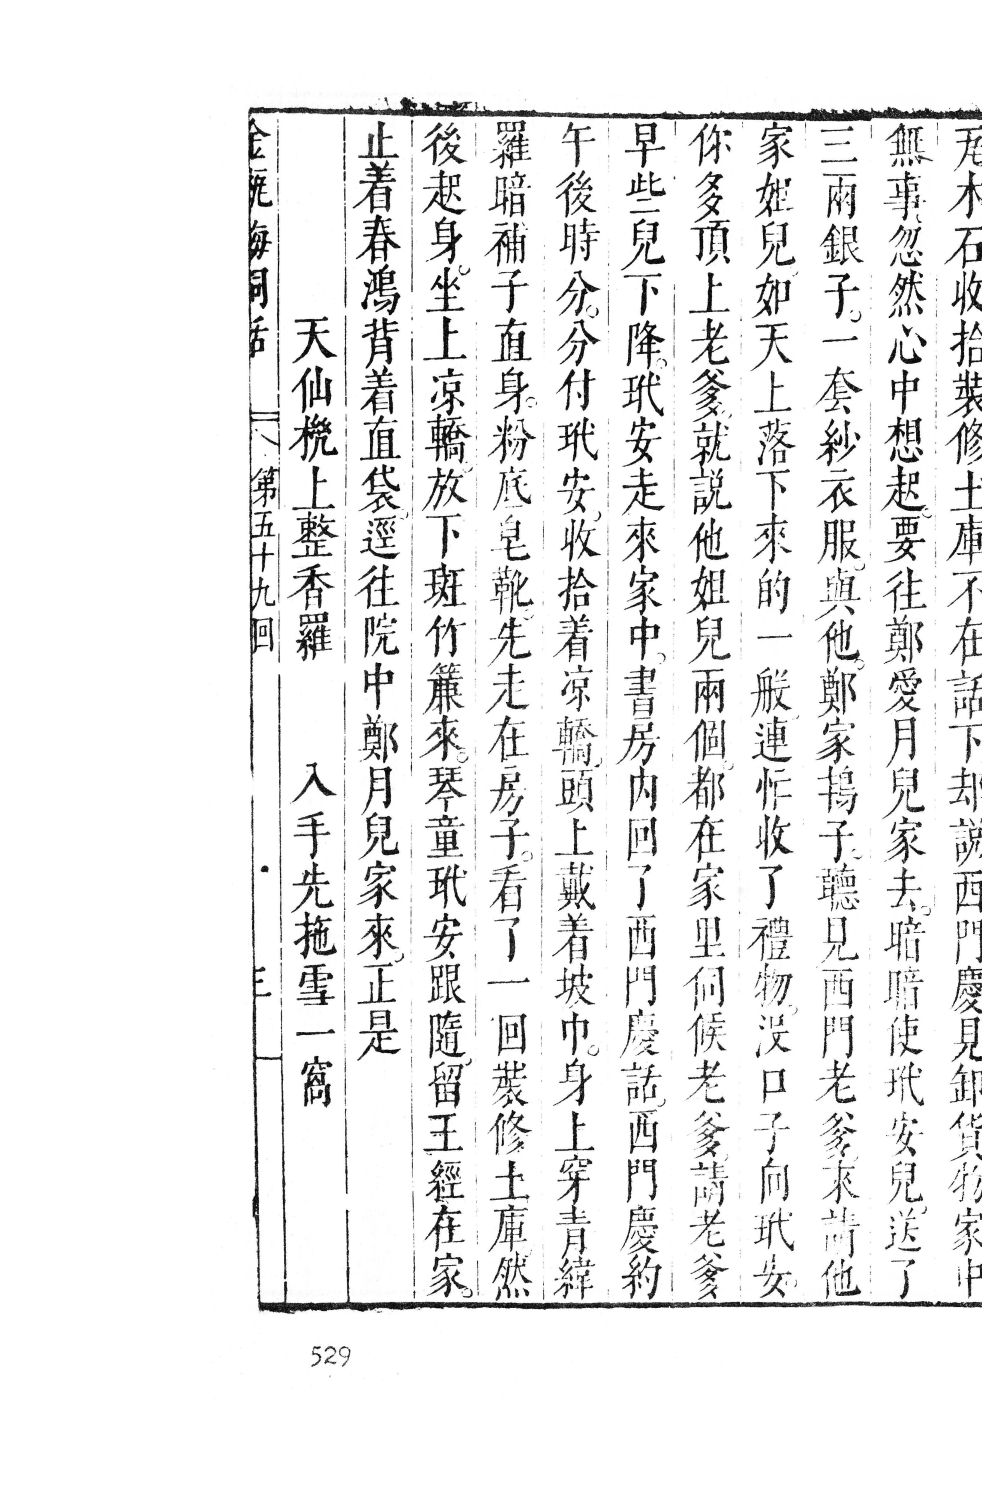 瓦木石收拾裝修土庫不在話下却説西門慶見卸貨物家中
無事忽然心中想起。要往鄭愛月兒家去。暗暗使玳安兒送了
三兩銀子。一套紗衣服與他。鄭家鴇子聽見西門老爹來請他
家姐兒如天上落下來的一般連忙收了禮物。没口子向玳安。
你多頂上老爹就説他姐兒兩個都在家里伺候老爹請老爹
早些兒下降。玳安走來家中。書房内回了西門慶話西門慶約
午後時分。分付玳安收拾着凉轎頭上戴着坡巾。身上穿青緯
羅暗補子直身。粉底皂靴。先走在房子。看了一回裝修土庫然
後起身。坐上凉轎放下斑竹簾來。琴童玳安跟隨留王經在家。
止着春鴻背着直袋逕往院中鄭月兒家來。正是
天仙機上整香羅　入手先拖雪一窩
金瓶梅詞話　第五十九回　三
529